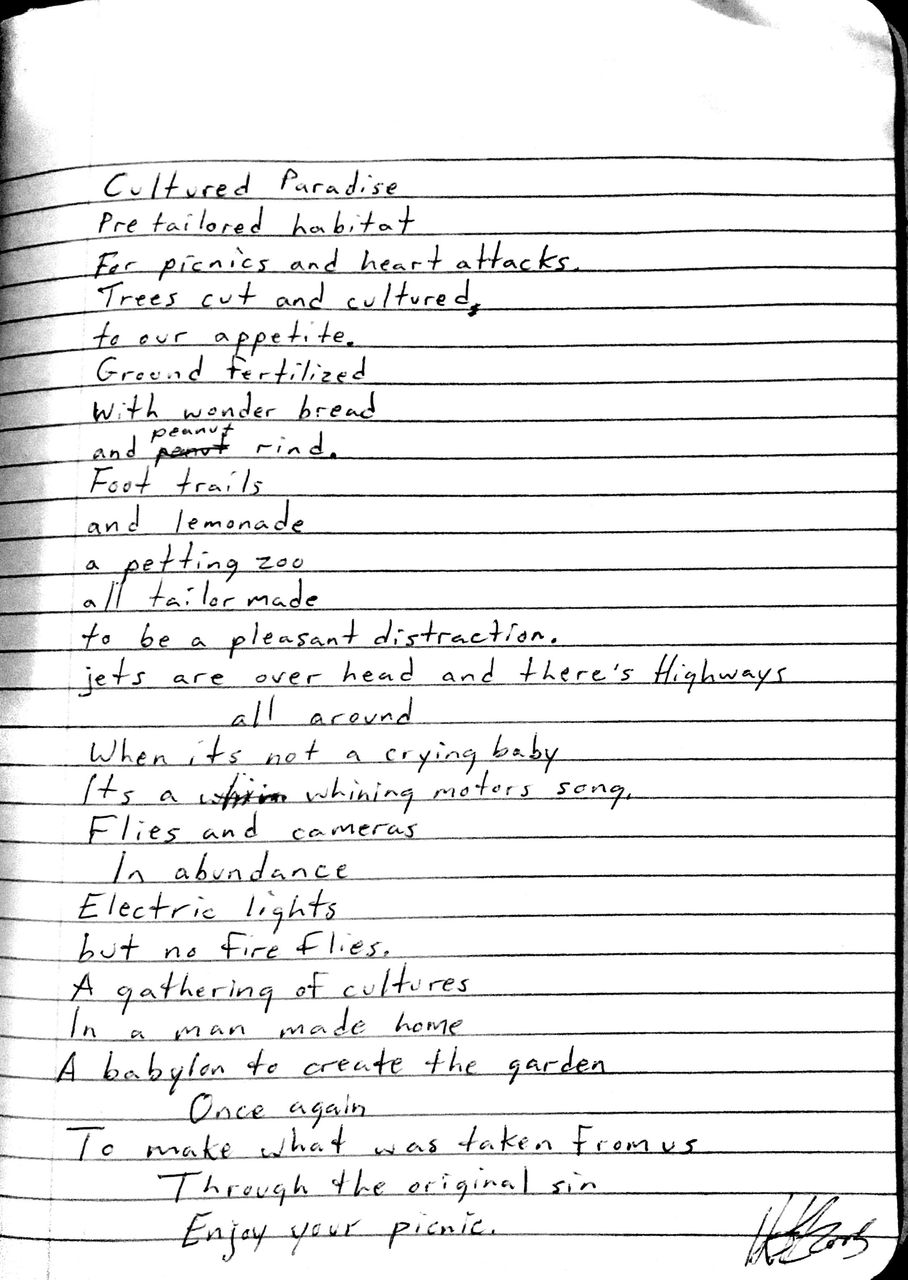 Cultured Paradise
Pre tailored habitat
For picnics and heart attacks.
Trees cut and cultured,
to our appetite.
Ground fertilized
With wonder bread
and peanut rind.
Foot trails
and lemonade
a petting zoo
all tailor made
to be a pleasant distraction.
jets are over head and there's Highways
all around
When its not a crying baby
Its a whining motors song.
Flies and cameras
In abundance
Electric lights
but no fire flies.
A gathering of cultures
In a man made home
A babylon to create the garden
Once again
To make what was taken from us
Through the original sin
Enjoy your picnic.